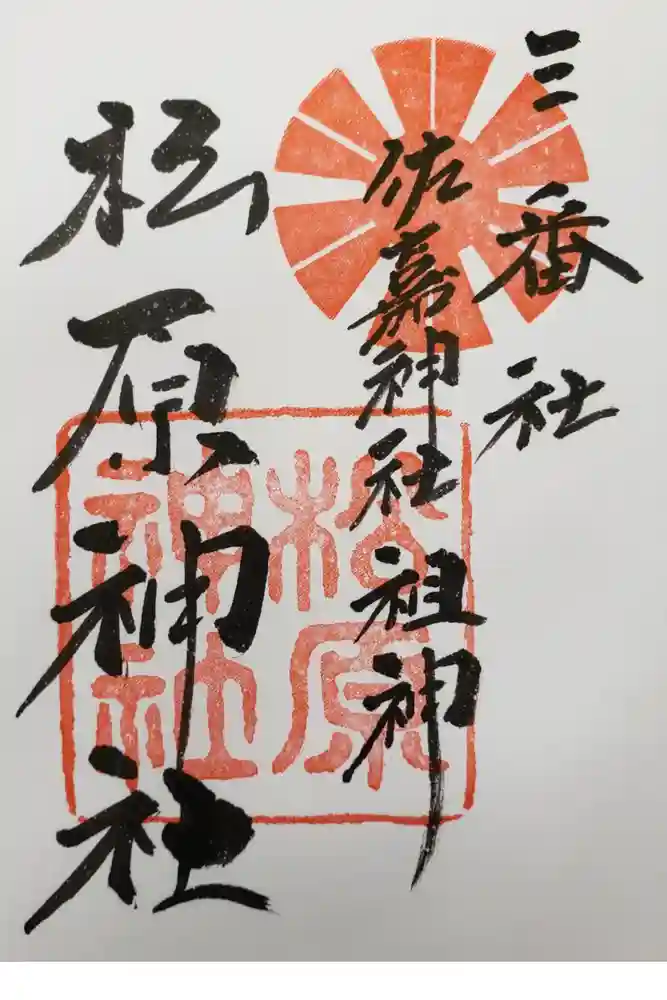 三番社
佐嘉神社祖神
松原神社
松原神社